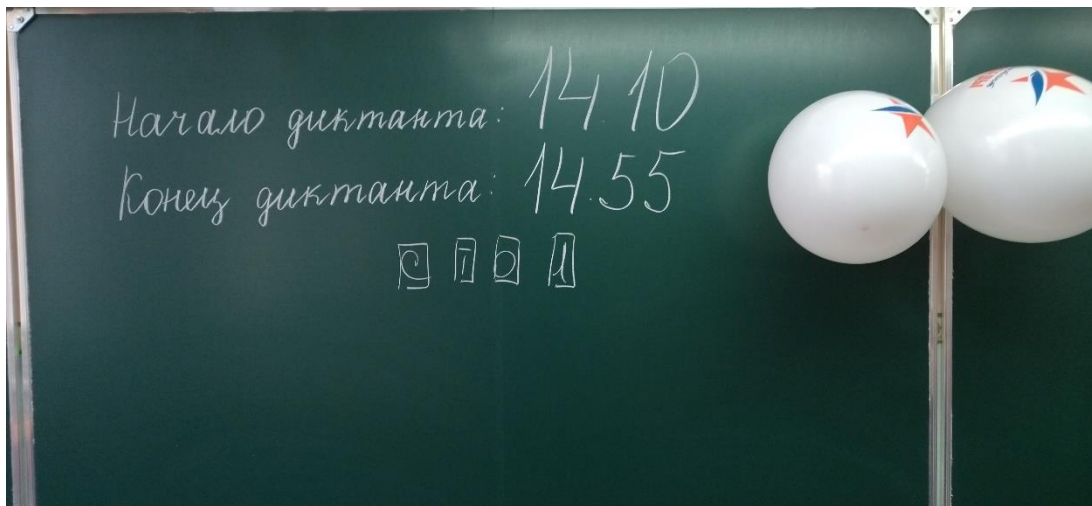 Начало диктанта: 14.10
Конец диктанта: 14.55